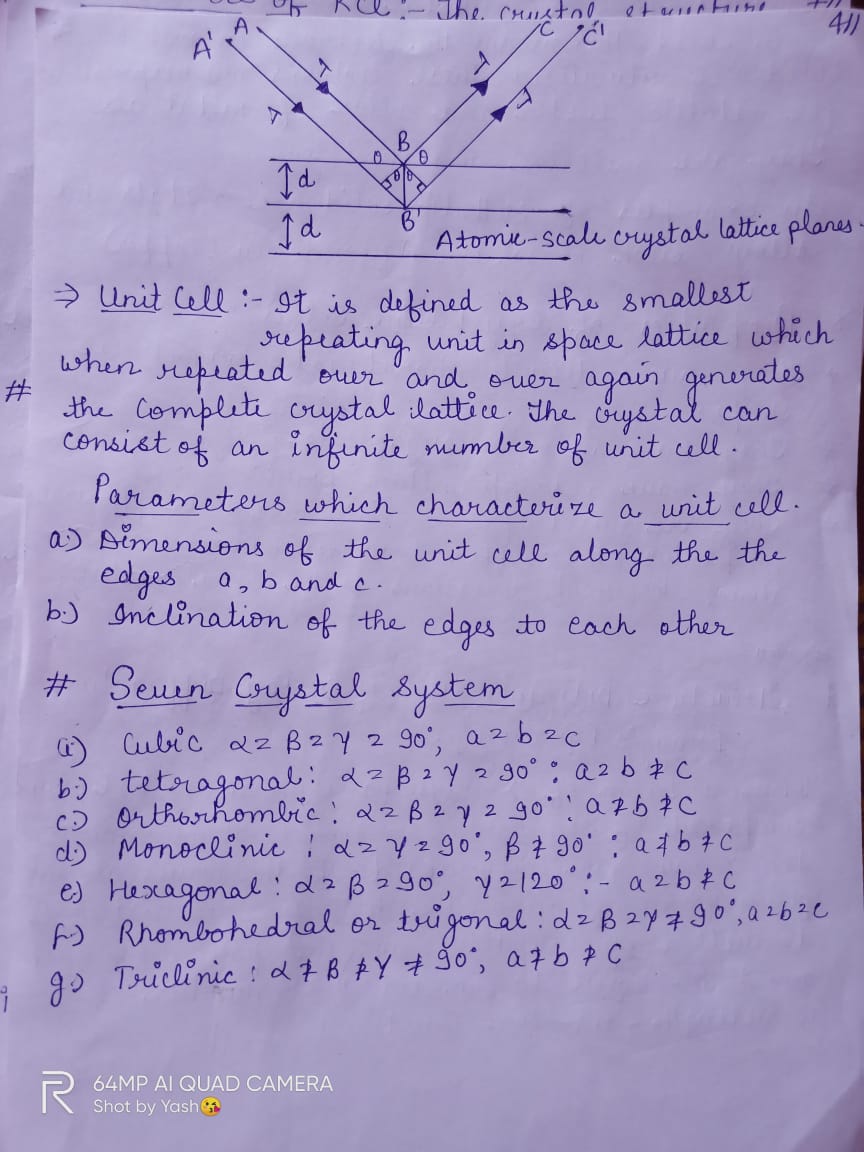 of KCl :- The crystal structure
411
A' A C C'
λ λ λ λ
B
θ θ
d θ θ
B'
d Atomic-scale crystal lattice planes.
⇒ Unit Cell :- It is defined as the smallest
repeating unit in space lattice which
# when repeated over and over again generates
the Complete crystal lattice. The crystal can
consist of an infinite number of unit cell.
Parameters which characterize a unit cell.
a) Dimensions of the unit cell along the the
edges a, b and c.
b) Inclination of the edges to each other
# Seven Crystal System
(i) Cubic α = β = γ = 90°, a = b = c
b) tetragonal : α = β = γ = 90° : a = b ≠ c
c) Orthorhombic : α = β = γ = 90° : a ≠ b ≠ c
d) Monoclinic : α = γ = 90°, β ≠ 90° : a ≠ b ≠ c
e) Hexagonal : α = β = 90°, γ = 120° :- a = b ≠ c
f) Rhombohedral or trigonal : α = β = γ ≠ 90°, a = b = c
g) Triclinic : α ≠ β ≠ γ ≠ 90°, a ≠ b ≠ c
R 64MP AI QUAD CAMERA
Shot by Yash😘